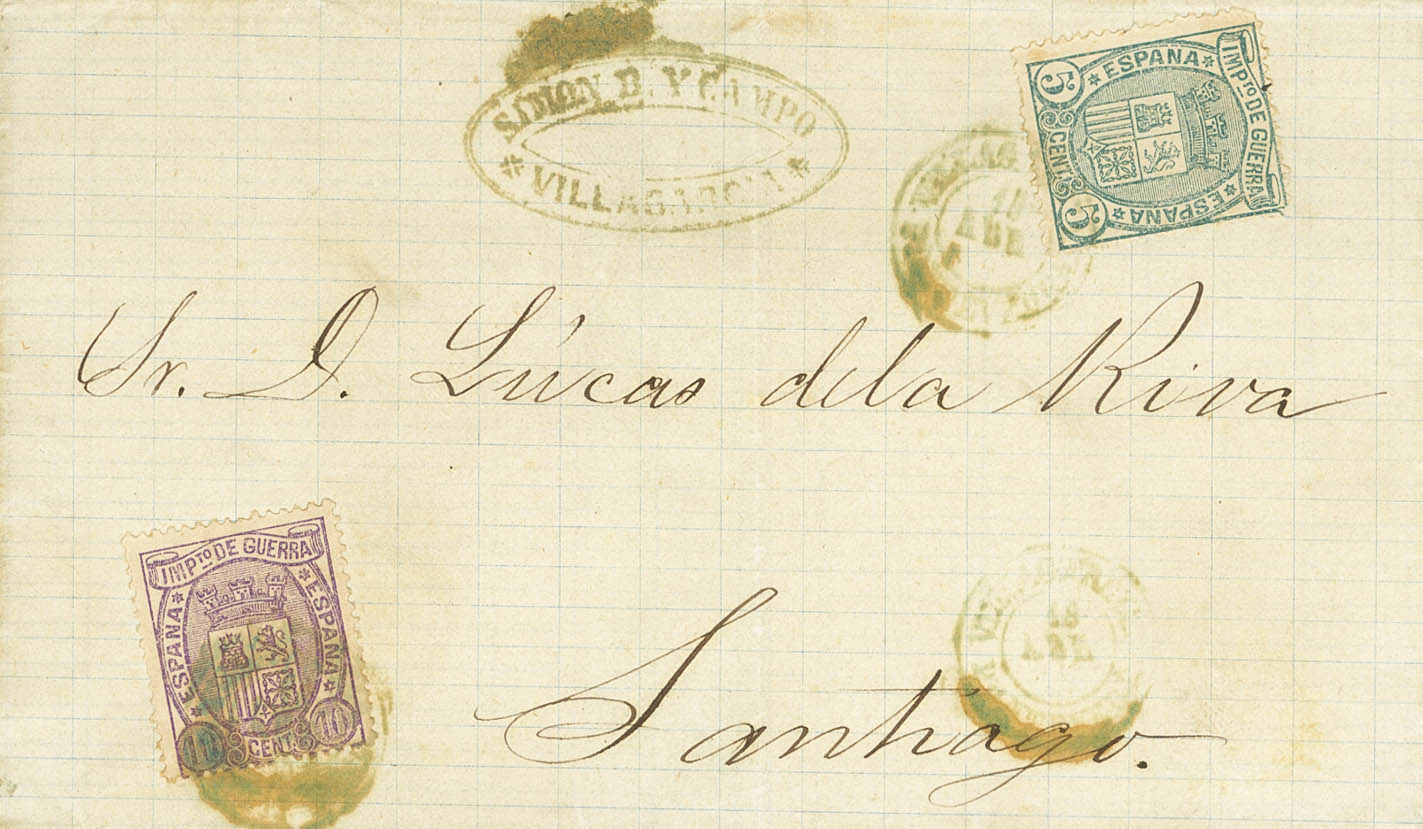 SIMON D. Y CAMPO
VILLAGARCIA
IMPTO DE GUERRA
ESPAÑA
ESPAÑA
5 CENTS 5
18
ABR
Sr. D. Lúcas dela Riva
IMPTO DE GUERRA
ESPAÑA
ESPAÑA
10 CENTS 10
18
ABR
Santiago.